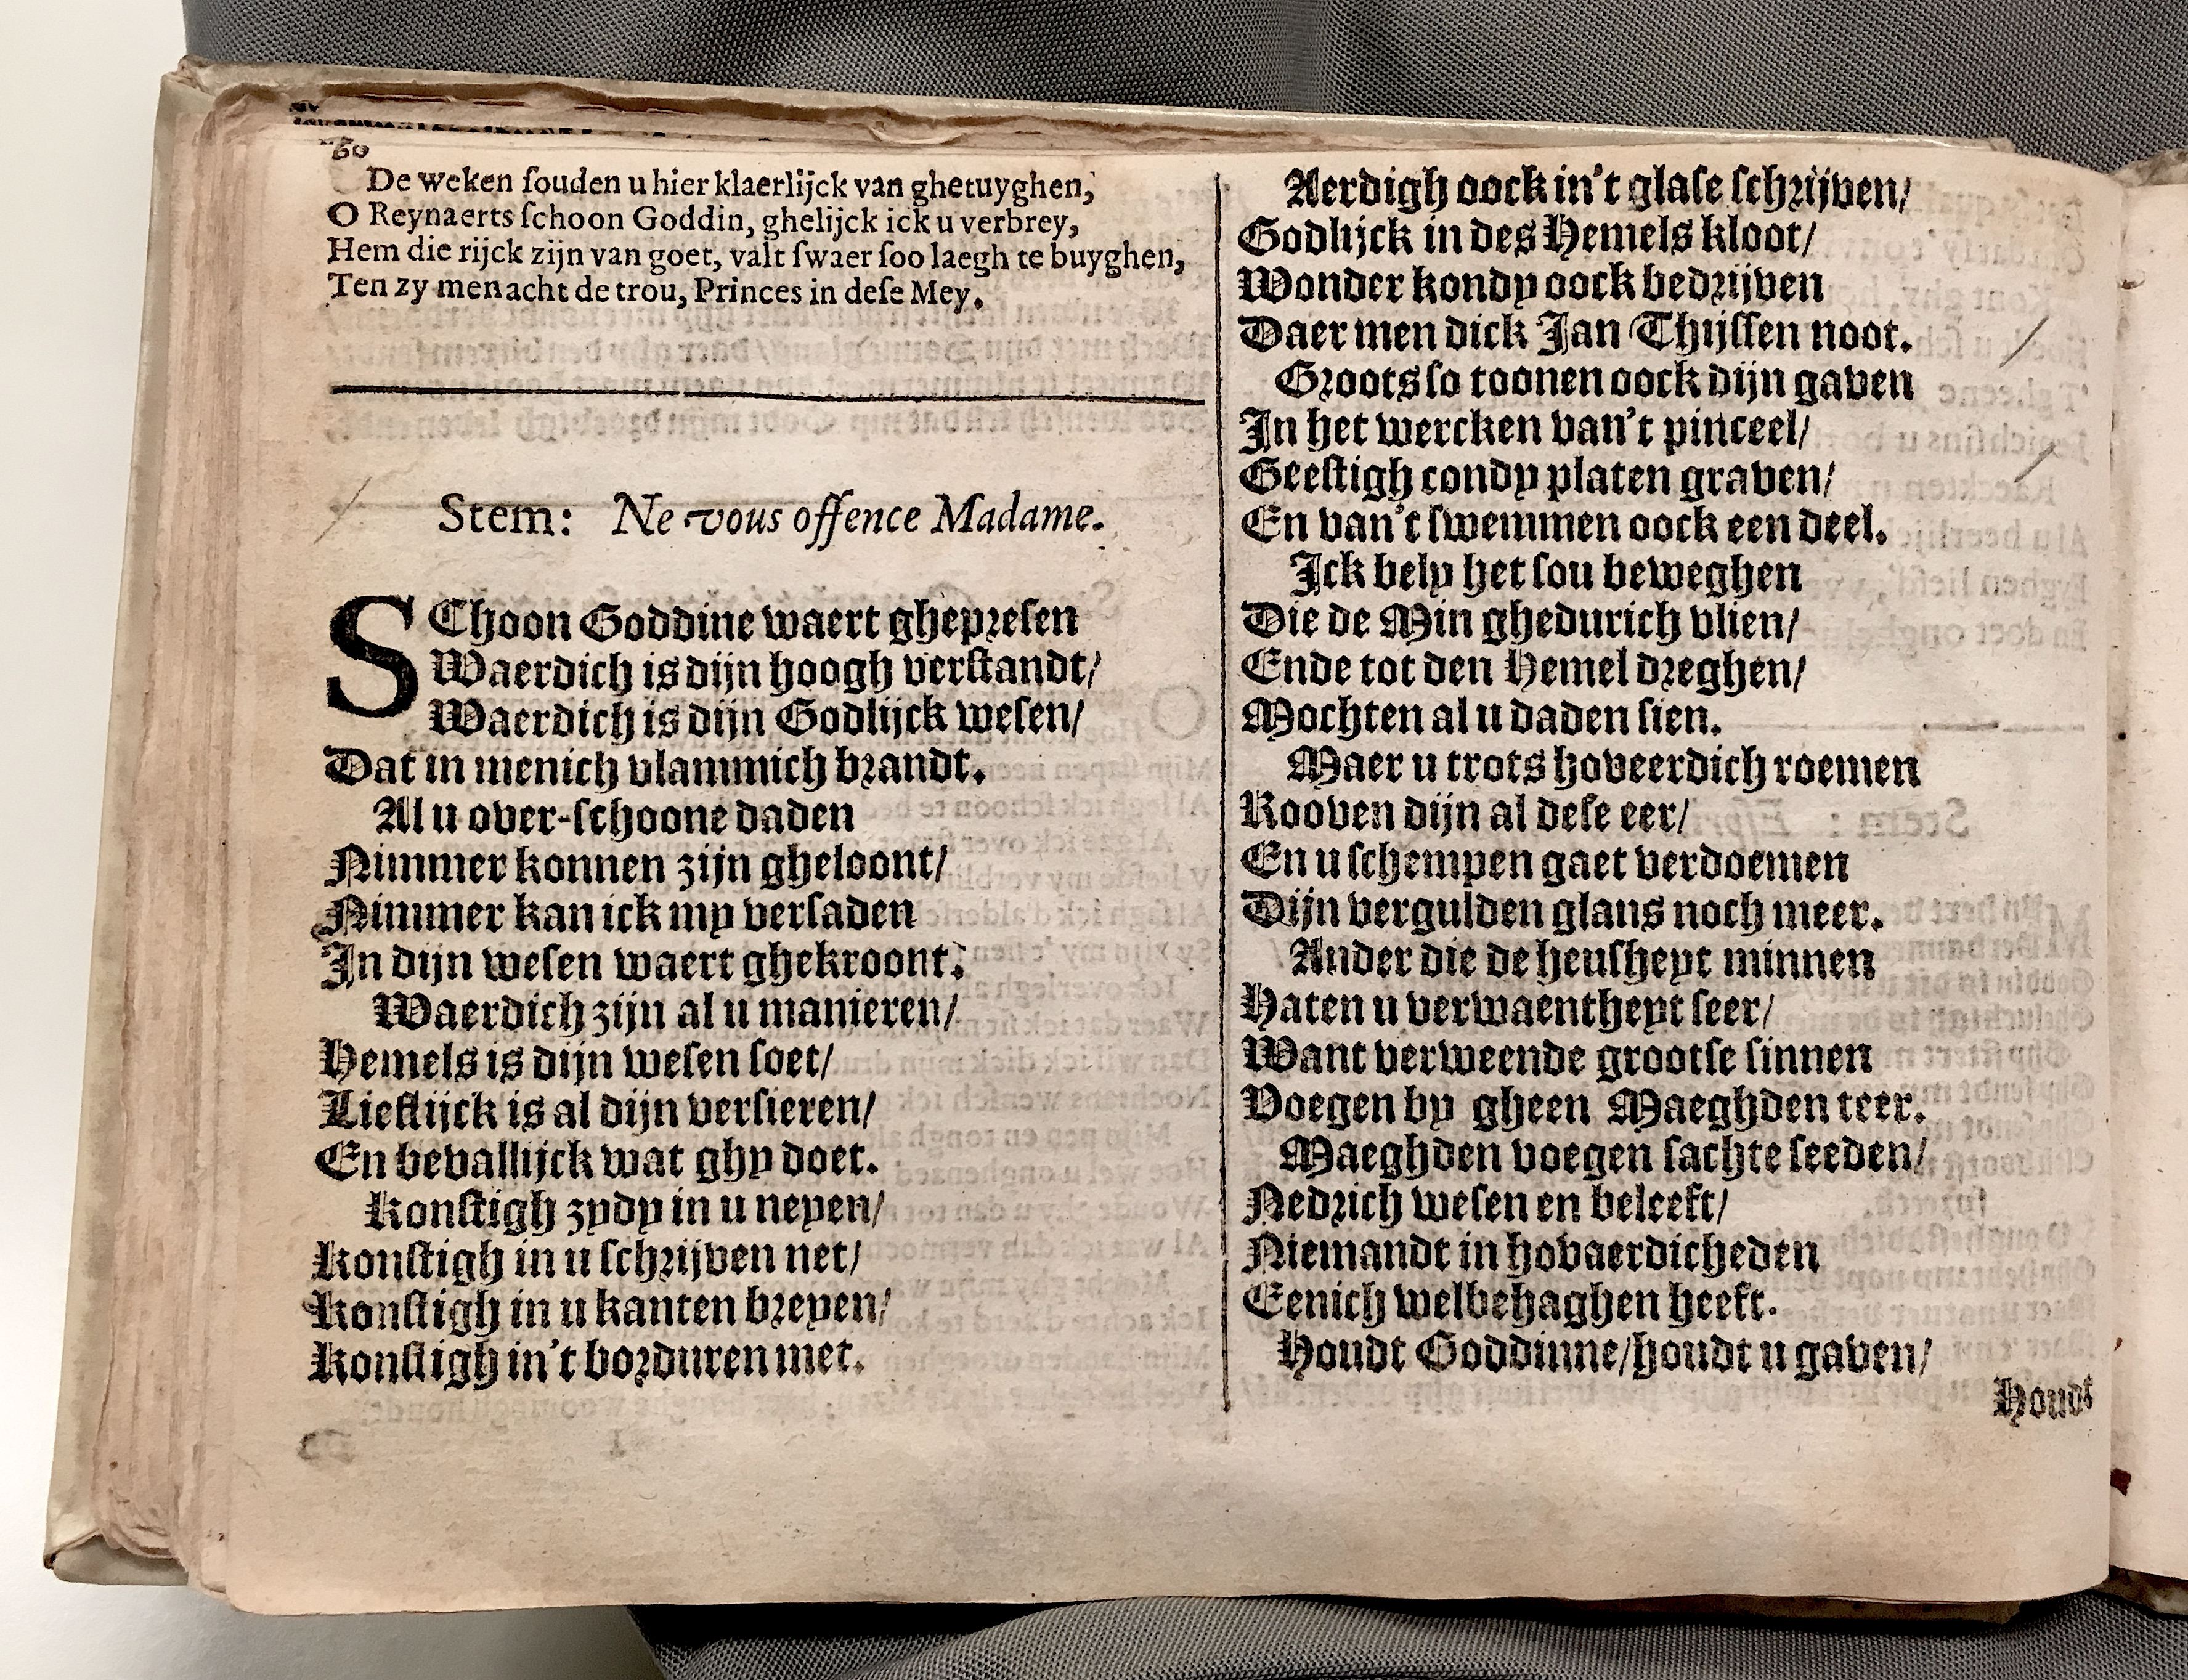 60
De weken souden u hier klaerlijck van ghetuyghen,
O Reynaerts schoon Goddin, ghelijck ick u verbrey,
Hem die rijck zijn van goet, valt swaer soo laegh te buyghen,
Ten zy men acht de trou, Princes in dese Mey.
Stem: Ne vous offence Madame.
SChoon Goddine waert ghepresen
Waerdich is dijn hoogh verstandt/
Waerdich is dijn Godlijck wesen/
Dat in menich vlammich brandt.
Al u over-schoone daden
Nimmer konnen zijn gheloont/
Nimmer kan ick my versaden
In dijn wesen waert ghekroont.
Waerdich zijn al u manieren/
Hemels is dijn wesen soet/
Lieflijck is al dijn versieren/
En bevallijck wat ghy doet.
Konstigh zydy in u neyen/
Konstigh in u schrijven net/
Konstigh in u kanten breyen/
Konstigh in't borduren met.
Aerdigh oock in't glase schrijven/
Godlijck in des Hemels kloot/
Wonder kondy oock bedrijven
Daer men dick Jan Thijssen noot.
Groots so toonen oock dijn gaven
In het wercken van't pinceel/
Geestigh condy platen graven/
En van't swemmen oock een deel.
Ick bely het sou beweghen
Die de Min ghedurich vlien/
Ende tot den Hemel dreghen/
Mochten al u daden sien.
Maer u trots hoveerdich roemen
Rooven dijn al dese eer/
En u schempen gaet verdoemen
Dijn vergulden glans noch meer.
Ander die de heusheyt minnen
Haten u verwaentheyt seer/
Want verweende grootse sinnen
Voegen by gheen Maeghden teer.
Maeghden voegen sachte seeden/
Nedrich wesen en beleeft/
Niemandt in hovaerdicheden
Eenich welbehaghen heeft.
Houdt Goddinne/houdt u gaven/
Houdt